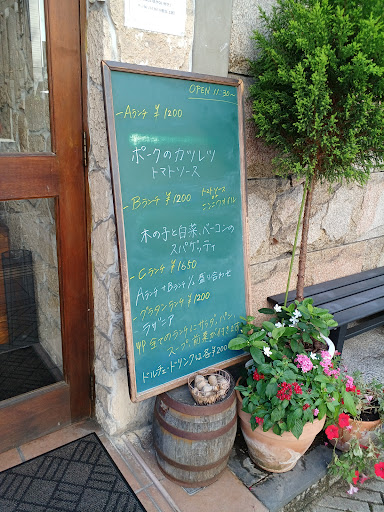 OPEN 11:30〜
-Aランチ ¥1200
ポークのカツレツ
トマトソース
-Bランチ ¥1200
トマトソース
or
木の子と白菜、ベーコンの
スパゲッティ
-Cランチ ¥1650
Aランチ+Bランチ 1/2 盛り合わせ
-グラタンランチ ¥1200
ラザニア
全てのランチにサラダ、パン、
スープ、前菜が付きます
ドルチェ、ドリンクは各¥200